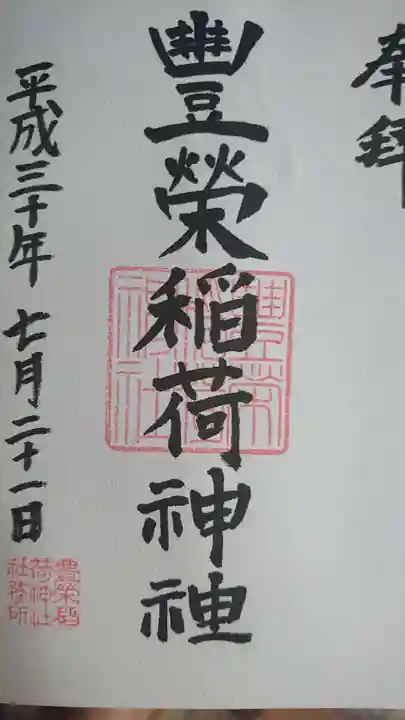 奉拝
豐榮稲荷神社
平成三十年七月二十一日
豊栄稲
荷神社
社務所